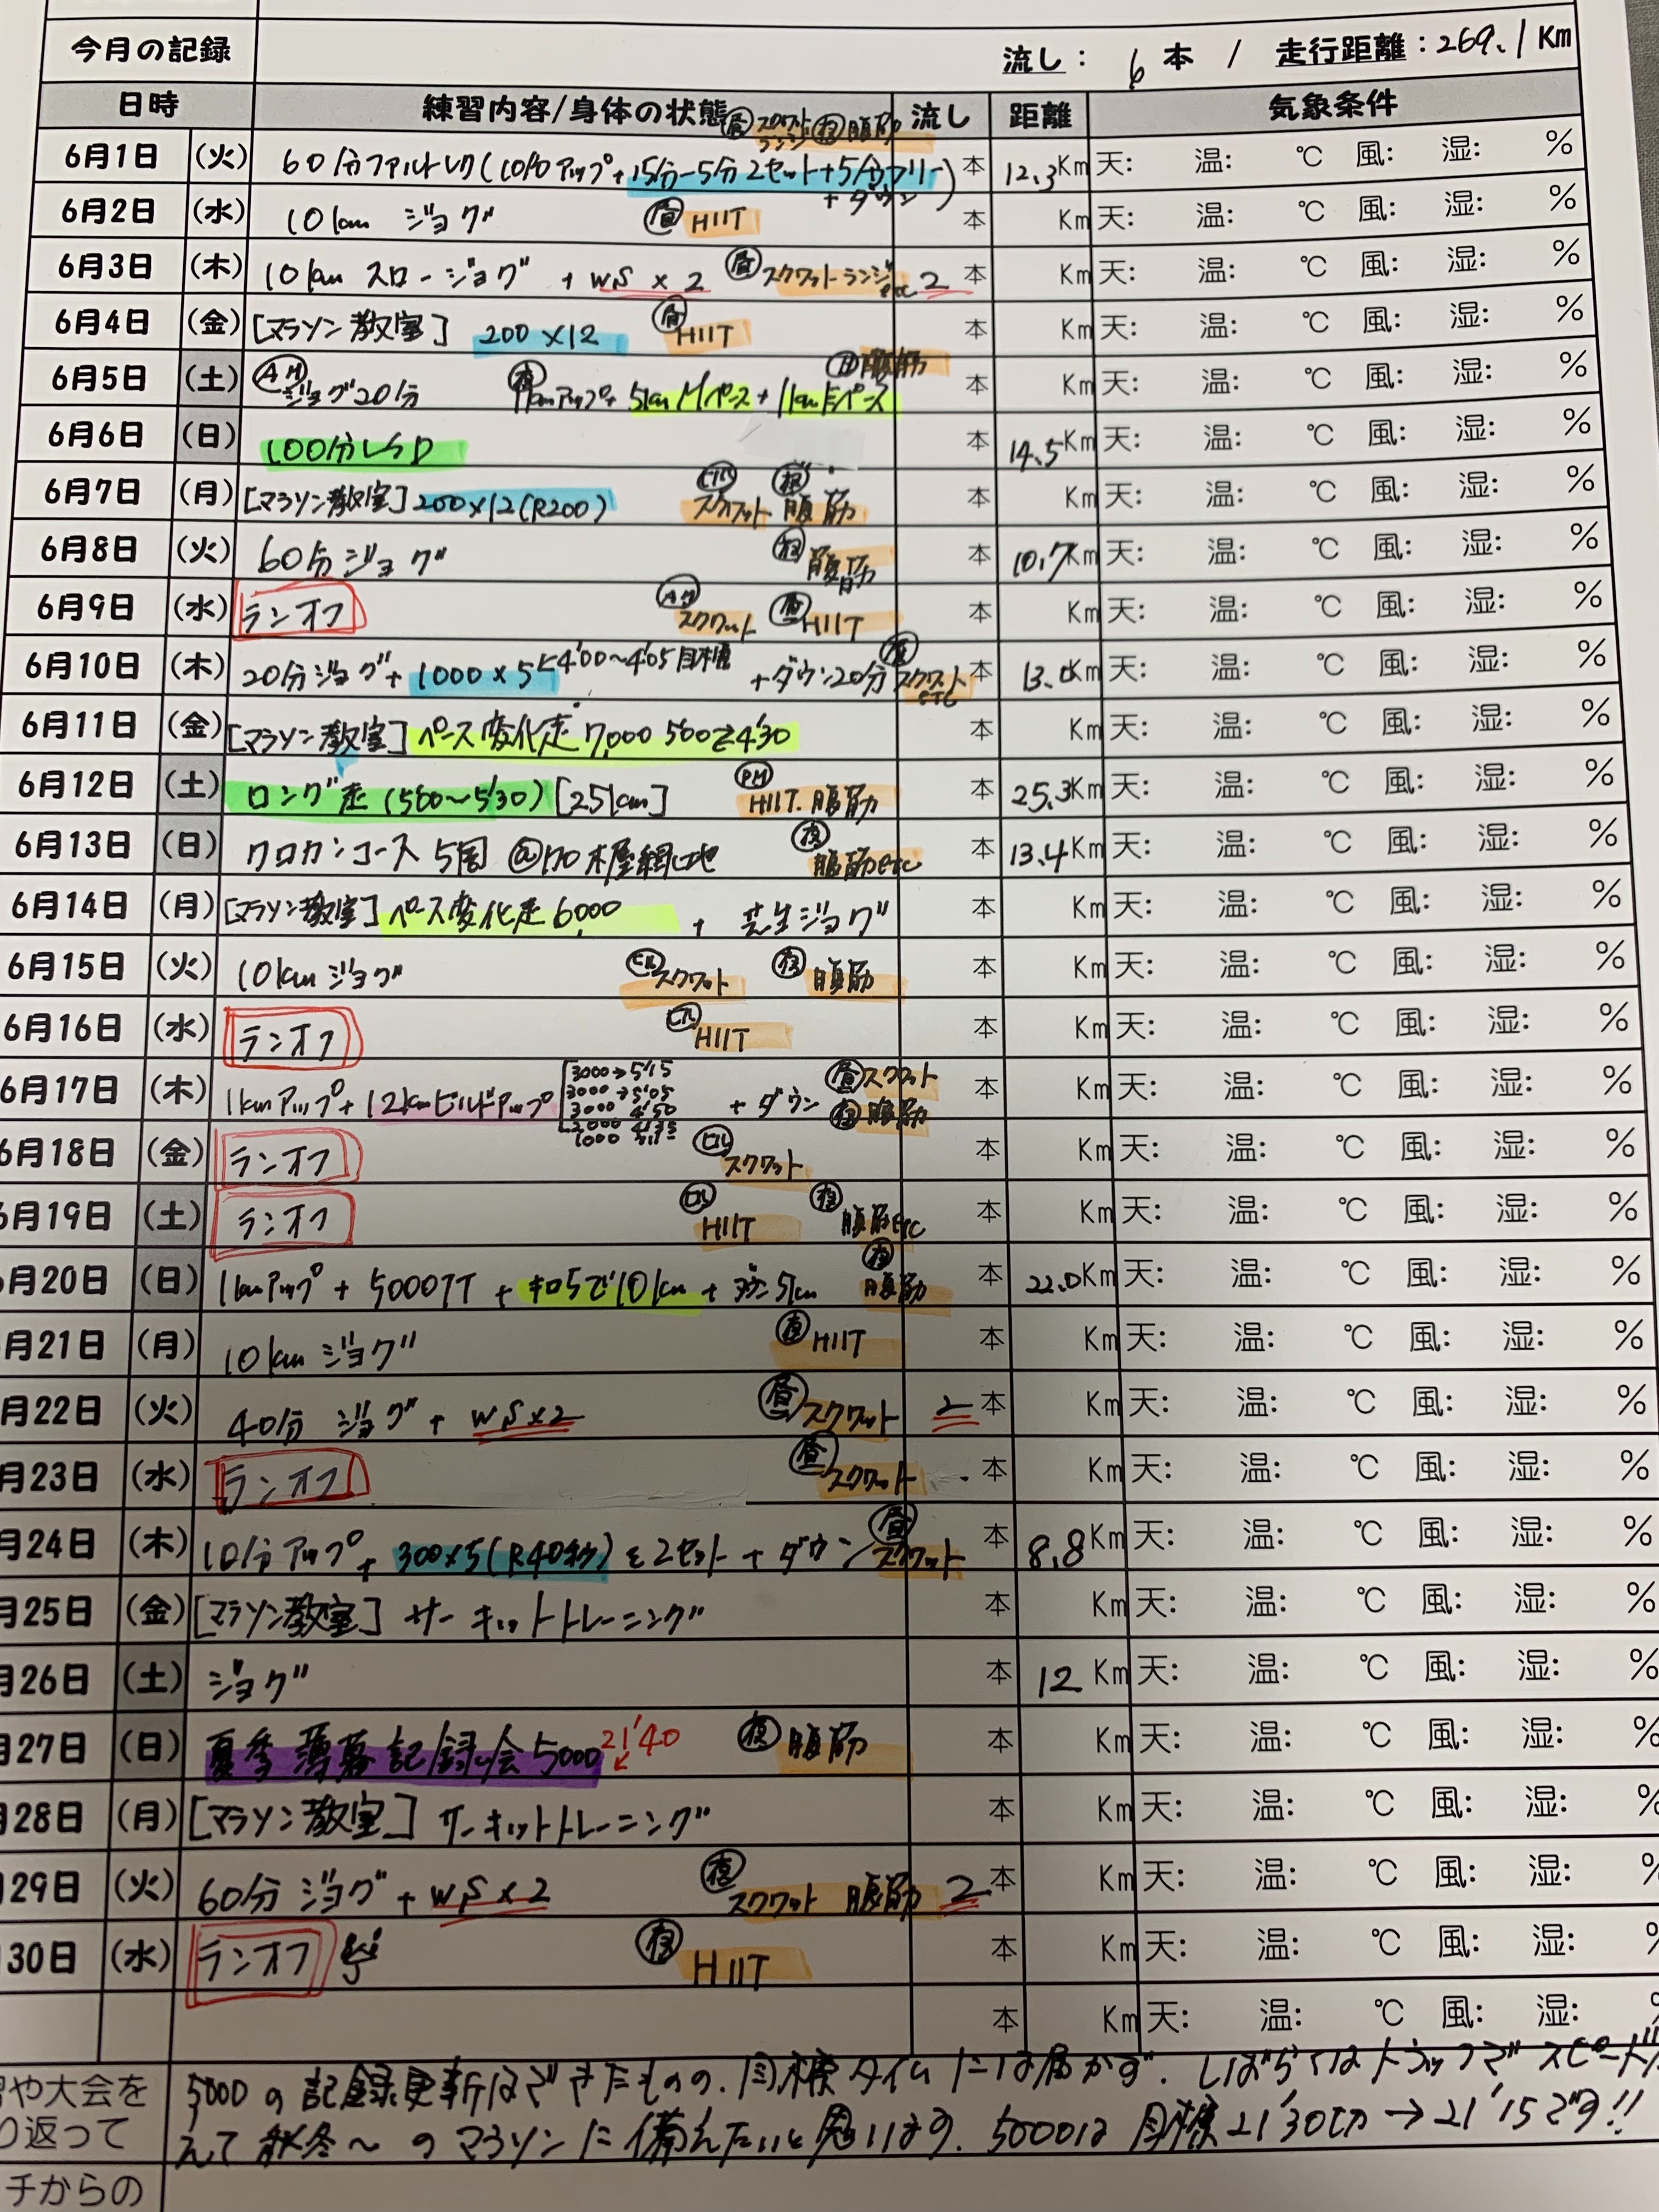 今月の記録 流し: 6 本 / 走行距離:269.1Km
日時 練習内容/身体の状態 流し 距離 気象条件
昼 スクワット ランジ 夜 腹筋
6月1日 (火) 60分ファルトレク(10分アップ+15分-5分2セット+5分フリー+ダウン) 本 12.3Km 天: 温: ℃ 風: 湿: %
6月2日 (水) 10km ジョグ 昼 HIIT 本 Km 天: 温: ℃ 風: 湿: %
6月3日 (木) 10km スロージョグ + WS×2 昼 スクワットランジetc 2本 Km 天: 温: ℃ 風: 湿: %
6月4日 (金) [マラソン教室] 200×12 昼 HIIT 本 Km 天: 温: ℃ 風: 湿: %
6月5日 (土) AM ジョグ20分 夜 1kmアップ+5km Mペース+1km Eペース 腹筋 本 Km 天: 温: ℃ 風: 湿: %
6月6日 (日) 100分LSD 本 14.5Km 天: 温: ℃ 風: 湿: %
6月7日 (月) [マラソン教室] 200×12(R200) ヒル スクワット 夜 腹筋 本 Km 天: 温: ℃ 風: 湿: %
6月8日 (火) 60分ジョグ 夜 腹筋 本 10.7Km 天: 温: ℃ 風: 湿: %
6月9日 (水) ランオフ AM スクワット 昼 HIIT 本 Km 天: 温: ℃ 風: 湿: %
6月10日 (木) 20分ジョグ+1000×5 4'00~4'05目標 +ダウン20分 昼 スクワットetc 本 13.0Km 天: 温: ℃ 風: 湿: %
6月11日 (金) [マラソン教室] ペース変化走 7,000 5'00と4'30 本 Km 天: 温: ℃ 風: 湿: %
6月12日 (土) ロング走 (5'00~5'30) [25km] PM HIIT. 腹筋 本 25.3Km 天: 温: ℃ 風: 湿: %
6月13日 (日) クロカンコース 5周 夜 腹筋etc 本 13.4Km 天: 温: ℃ 風: 湿: %
6月14日 (月) [マラソン教室] ペース変化走 6,000 + 芝生ジョグ 本 Km 天: 温: ℃ 風: 湿: %
6月15日 (火) 10kmジョグ ヒル スクワット 夜 腹筋 本 Km 天: 温: ℃ 風: 湿: %
6月16日 (水) ランオフ ヒル HIIT 本 Km 天: 温: ℃ 風: 湿: %
6月17日 (木) 1kmアップ+12kmビルドアップ [3000→5'15 3000→5'05 3000 4'50 2000 4'35 1000 + ダウン 昼 スクワット 夜 腹筋 本 Km 天: 温: ℃ 風: 湿: %
6月18日 (金) ランオフ ヒル スクワット 本 Km 天: 温: ℃ 風: 湿: %
6月19日 (土) ランオフ ヒル HIIT 夜 腹筋etc 本 Km 天: 温: ℃ 風: 湿: %
月20日 (日) 1kmアップ + 5000TT + キロ5で10km + 5km 夜 腹筋 本 22.0Km 天: 温: ℃ 風: 湿: %
月21日 (月) 10km ジョグ 夜 HIIT 本 Km 天: 温: ℃ 風: 湿: %
月22日 (火) 40分 ジョグ + WS×2 昼 スクワット 2本 Km 天: 温: ℃ 風: 湿: %
月23日 (水) ランオフ 昼 スクワット 本 Km 天: 温: ℃ 風: 湿: %
月24日 (木) 10分アップ + 300×5(R40秒)を2セット + ダウン 昼 スクワット 本 8.8Km 天: 温: ℃ 風: 湿: %
月25日 (金) [マラソン教室] サーキットトレーニング 本 Km 天: 温: ℃ 風: 湿: %
月26日 (土) ジョグ 本 12 Km 天: 温: ℃ 風: 湿: %
月27日 (日) 夏季 薄暮 記録会 5000 21'40 夜 腹筋 本 Km 天: 温: ℃ 風: 湿: %
28日 (月) [マラソン教室] サーキットトレーニング 本 Km 天: 温: ℃ 風: 湿: %
29日 (火) 60分 ジョグ + WS×2 夜 スクワット 腹筋 2本 Km 天: 温: ℃ 風: 湿: %
30日 (水) ランオフ 夜 HIIT 本 Km 天: 温: ℃ 風: 湿: %
本 Km 天: 温: ℃ 風: 湿: %
や大会を 5000の記録更新はできたものの、目標タイムには届かず。しばらくはトラックでスピード
り返って えて秋冬~のマラソンに備えたいと思います。5000は目標21'30切→21'15です!!
チからの